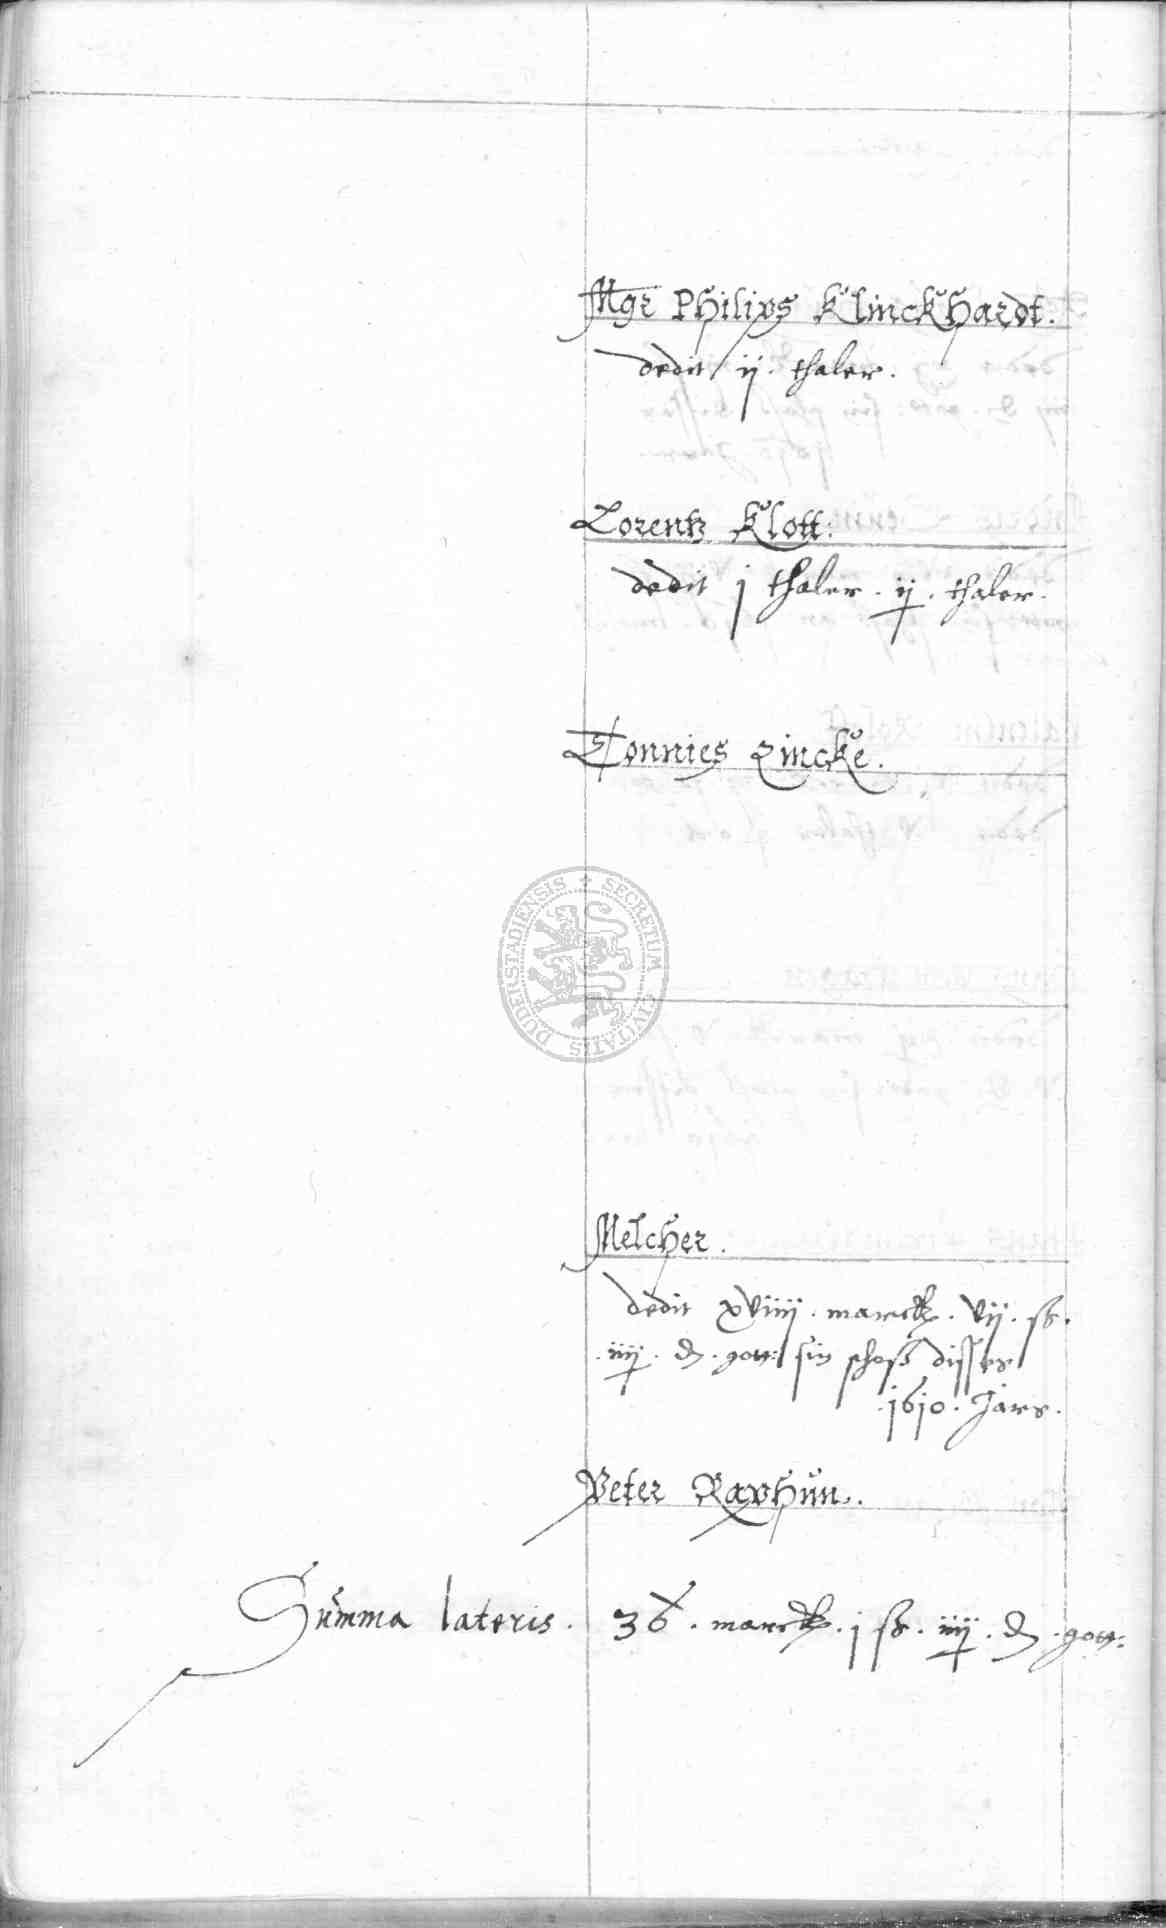 Mgr Philips Klinckhardt.
dedit ij. thaler.
Lorentz Klott.
dedit j thaler. ij. thaler.
Tonnies Zincke.
SECRETUM CIVITATIS DUDERSTADIENSIS
Melcher.
dedit xviiij. marck. vij. ß.
iiij. d. gott: sin schoß disses
1610. Jars.
Peter Raphun.
Summa lateris. 36. marck. j ß. iiij. d. gott: